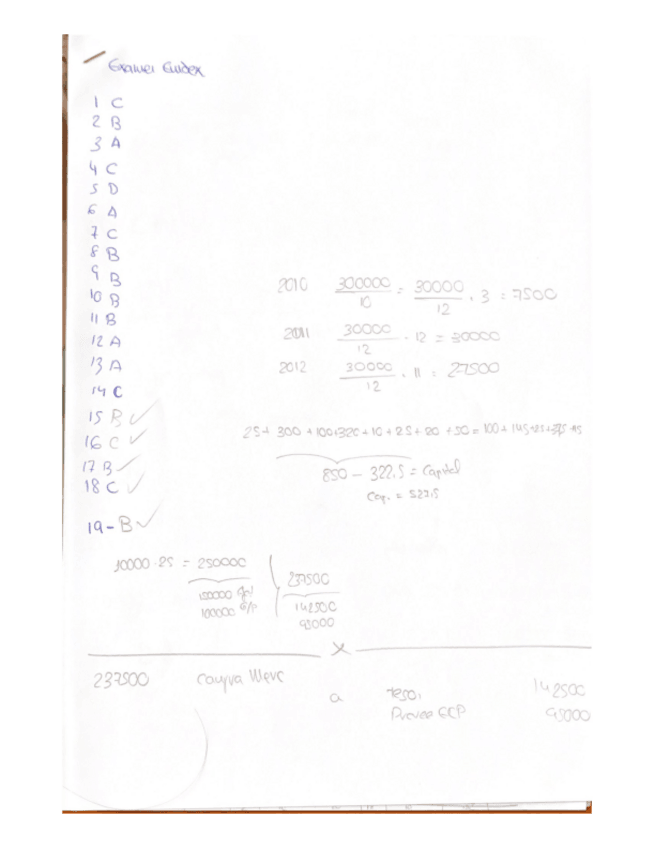 Examen Eudex
1 C
2 B
3 A
4 C
5 D
6 A
7 C
8 B
9 B
10 B
11 B
12 A
13 A
14 C
15 B ✓
16 C ✓
17 B ✓
18 C ✓
19 - B ✓
2010 300000/10 = 30000/12 · 3 = 7500
2011 30000/12 · 12 = 30000
2012 30000/12 · 11 = 27500
25 + 300 + 100+320 + 10 + 25 + 20 + 50 = 100 + 145+25+
850 - 322.5 = Capital
Cap. = 527.5
10000 · 25 = 250000
150000
100000
237500
142500
95000
X
237500 Compra Merc
a Teso. 142500
Provee ECP 95000